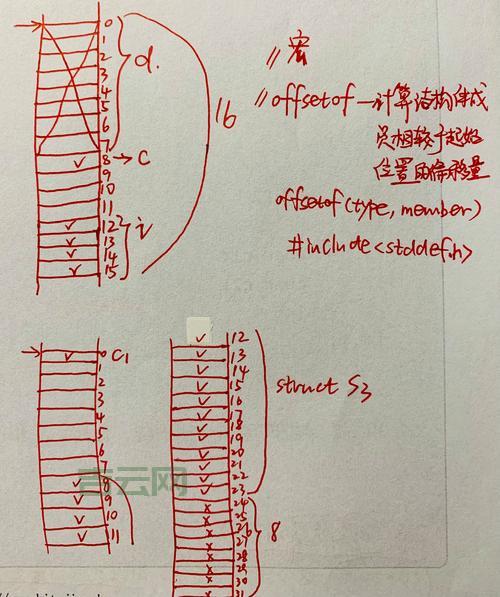 0
1
2
3
4
5
6
7
8→C
9
10
11
12
13
14
15
d.
i
16
//宏
//offsetof—计算结构体成
员相较于起始
位置的偏移量
offsetof(type, member)
#include<stddef.h>
0 C1
1
2
3
4
5
6
7
8
9
10
11
12
13
14
15
16
17
18
19
20
21
22
23
24
25
26
27
28
29
30
31
struct S3
8
言云网